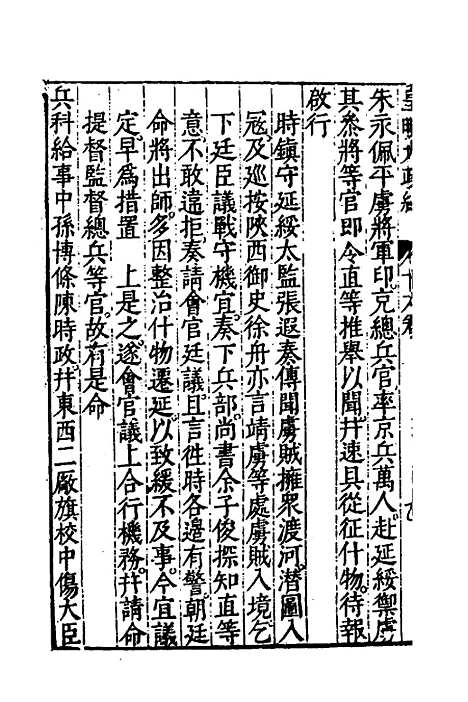 朱永佩平虜將軍印充總兵官率京兵萬人赴延綏禦虜
其叅將等官即令直等推舉以聞并速具從征什物待報
啟行
時鎮守延綏太監張遐奏傳聞虜賊擁衆渡河潜圖入
冦及廵按陝西御史徐舟亦言靖虜等處虜賊入境乞
下廷臣議戰守機宜奏下兵部尚書余子俊探知直等
意不敢違拒奏請會官廷議且言徃時各邊有警朝廷
命將出師多因整治什物遷延以致緩不及事今宜議
定早為措置 上是之遂會官議上合行機務并請命
提督監督總兵等官故有是命
兵科給事中孫博條陳時政并東西二厰旗校中傷大臣